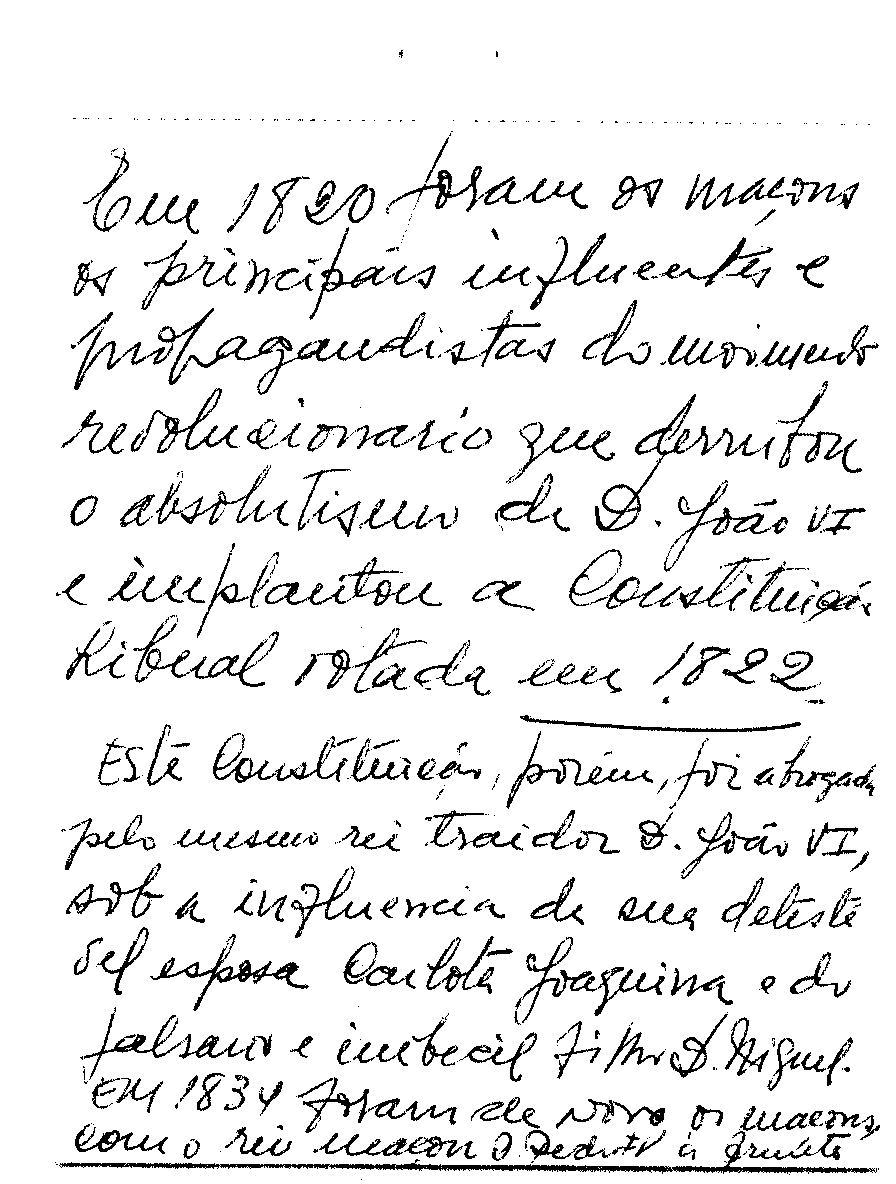 Em 1820 foram os maçons
os principais influentes e
propagandistas do movimento
revolucionario que derrubou
o absolutismo de D. João VI
e implantou a Constituição
Liberal votada em 1822
Esta Constituição, porém, foi abrogada
pelo mesmo rei traidor D. João VI,
sob a influencia de sua detestá
vel esposa Carlota Joaquina e do
falsario e imbecil filho D. Miguel.
EM 1834 foram de novo os maçons,
com o rei maçon D. Pedro IV á frente